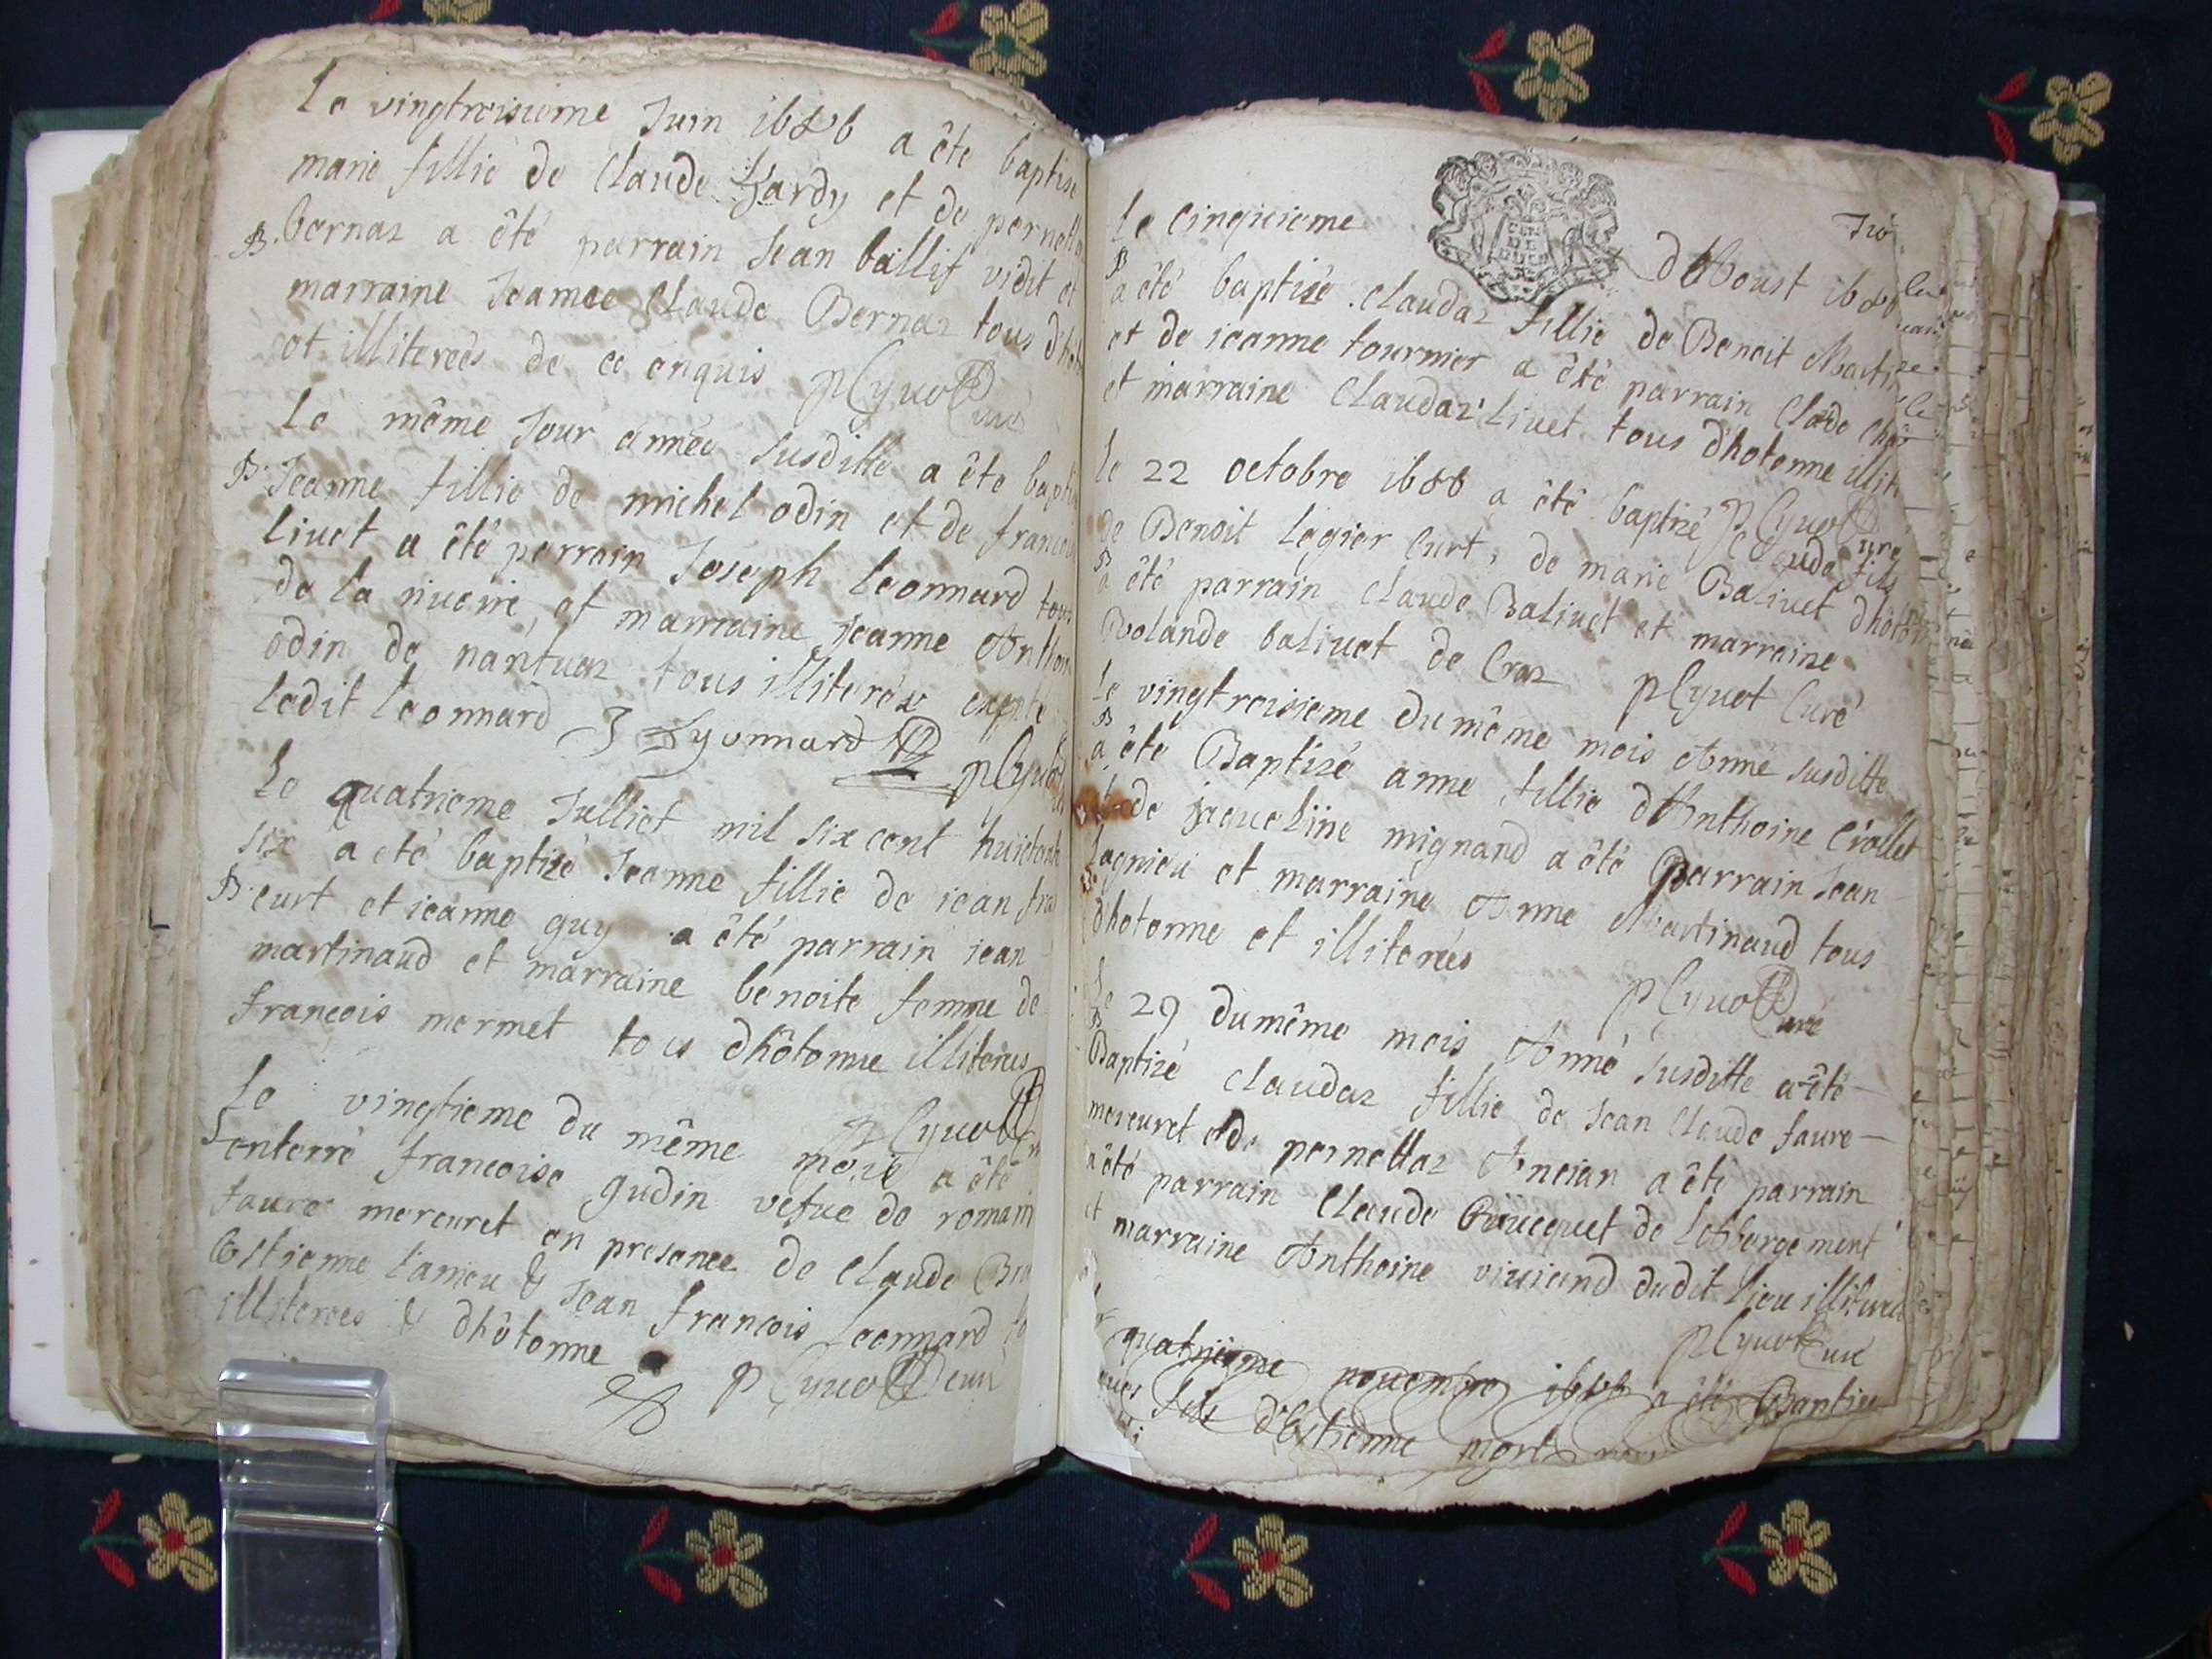 Le vingtroisieme Juin 1686 a êté baptisé
marie fillie de Claude Hardy et de pernette
B. bernaz a êté parrain Jean ballif vidit et
marraine Jeanne Claude Bernaz tous
et illiterés de ce enquis PCyvot Curé
Le même Jour année susditte a êté
B. Jeanne fillie de michel odin et de
livet a êté perrain Joseph Leonnard tous
de la riveire, et marraine Jeanne Anthoi
odin de nantuaz tous illiteréz
ledit Leonnard J Lyonnard PCyvot
Le quatrieme Julliet mil six cent
six a eté baptizé Jeanne fillie de iean
B. curt et ieanne guy a êté parrain iean
martinaud et marraine benoite femme de
francois mermet tous dhôtonne illiterés
PCyvot
Le vingtieme du même mois a êté
S enterré francoise gudin vefve de romain
faure mercuret en presence de claude
Estienne Lanieu & Jean francois Leonnard
illiterees & dhôtonne
PCyvot curé
Le Cinquieme dAoust
B
a êté baptizé claudaz fillie de Benoit
et de ieanne tournier a êté parrain Claude
et marraine Claudaz livet tous dhotonne
PCyvot Curé
Le 22 octobre 1686 a êté baptizé Claude fils
de Benoit legier Curt, de marie Balivet
B
a êté parrain claude Balivet et marraine
Rolande balivet de Craz PCyvot Curé
Le vingtroisieme du même mois Anné susditte
B
a êté Baptizé anne fillie dAnthoine Crollet
de jaqueline mignand a êté Parrain Jean
Lagnieu et marraine Anne Martinaud tous
dhotonne et illiterés
PCyvot Curé
Le 29 du même mois Anné susditte a êté
B
Baptizé claudaz fillie de Jean Claude faure
mercuret et de pernettaz Ancian a êté parrain
a êté parrain Claude de Labbergement
et marraine Anthoine viviand dudit lieu
PCyvot Curé
quatrieme novembre 1686 a êté Baptizé
fils dEstienne